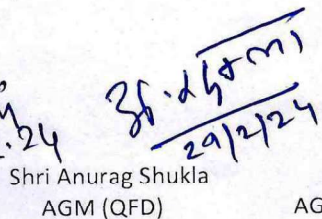 अ. शुक्ला
.24
29/2/24
Shri Anurag Shukla
AGM (QFD)
AG